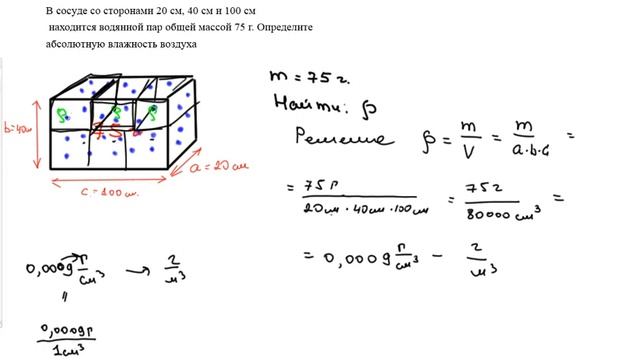 В сосуде со сторонами 20 см, 40 см и 100 см
находится водянной пар общей массой 75 г. Определите
абсолютную влажность воздуха
m = 75 г.
Найти: ρ
Решение ρ = m/V = m/a·b·c =
= 75 г/20см · 40см · 100см = 75 г/80000 см³ =
= 0,0009 г/см³ – г/м³
b=40см
ρ ρ ρ
75
a = 20 см
c = 100 см.
0,0009 г/см³ → г/м³
"
0,0009г/1см³